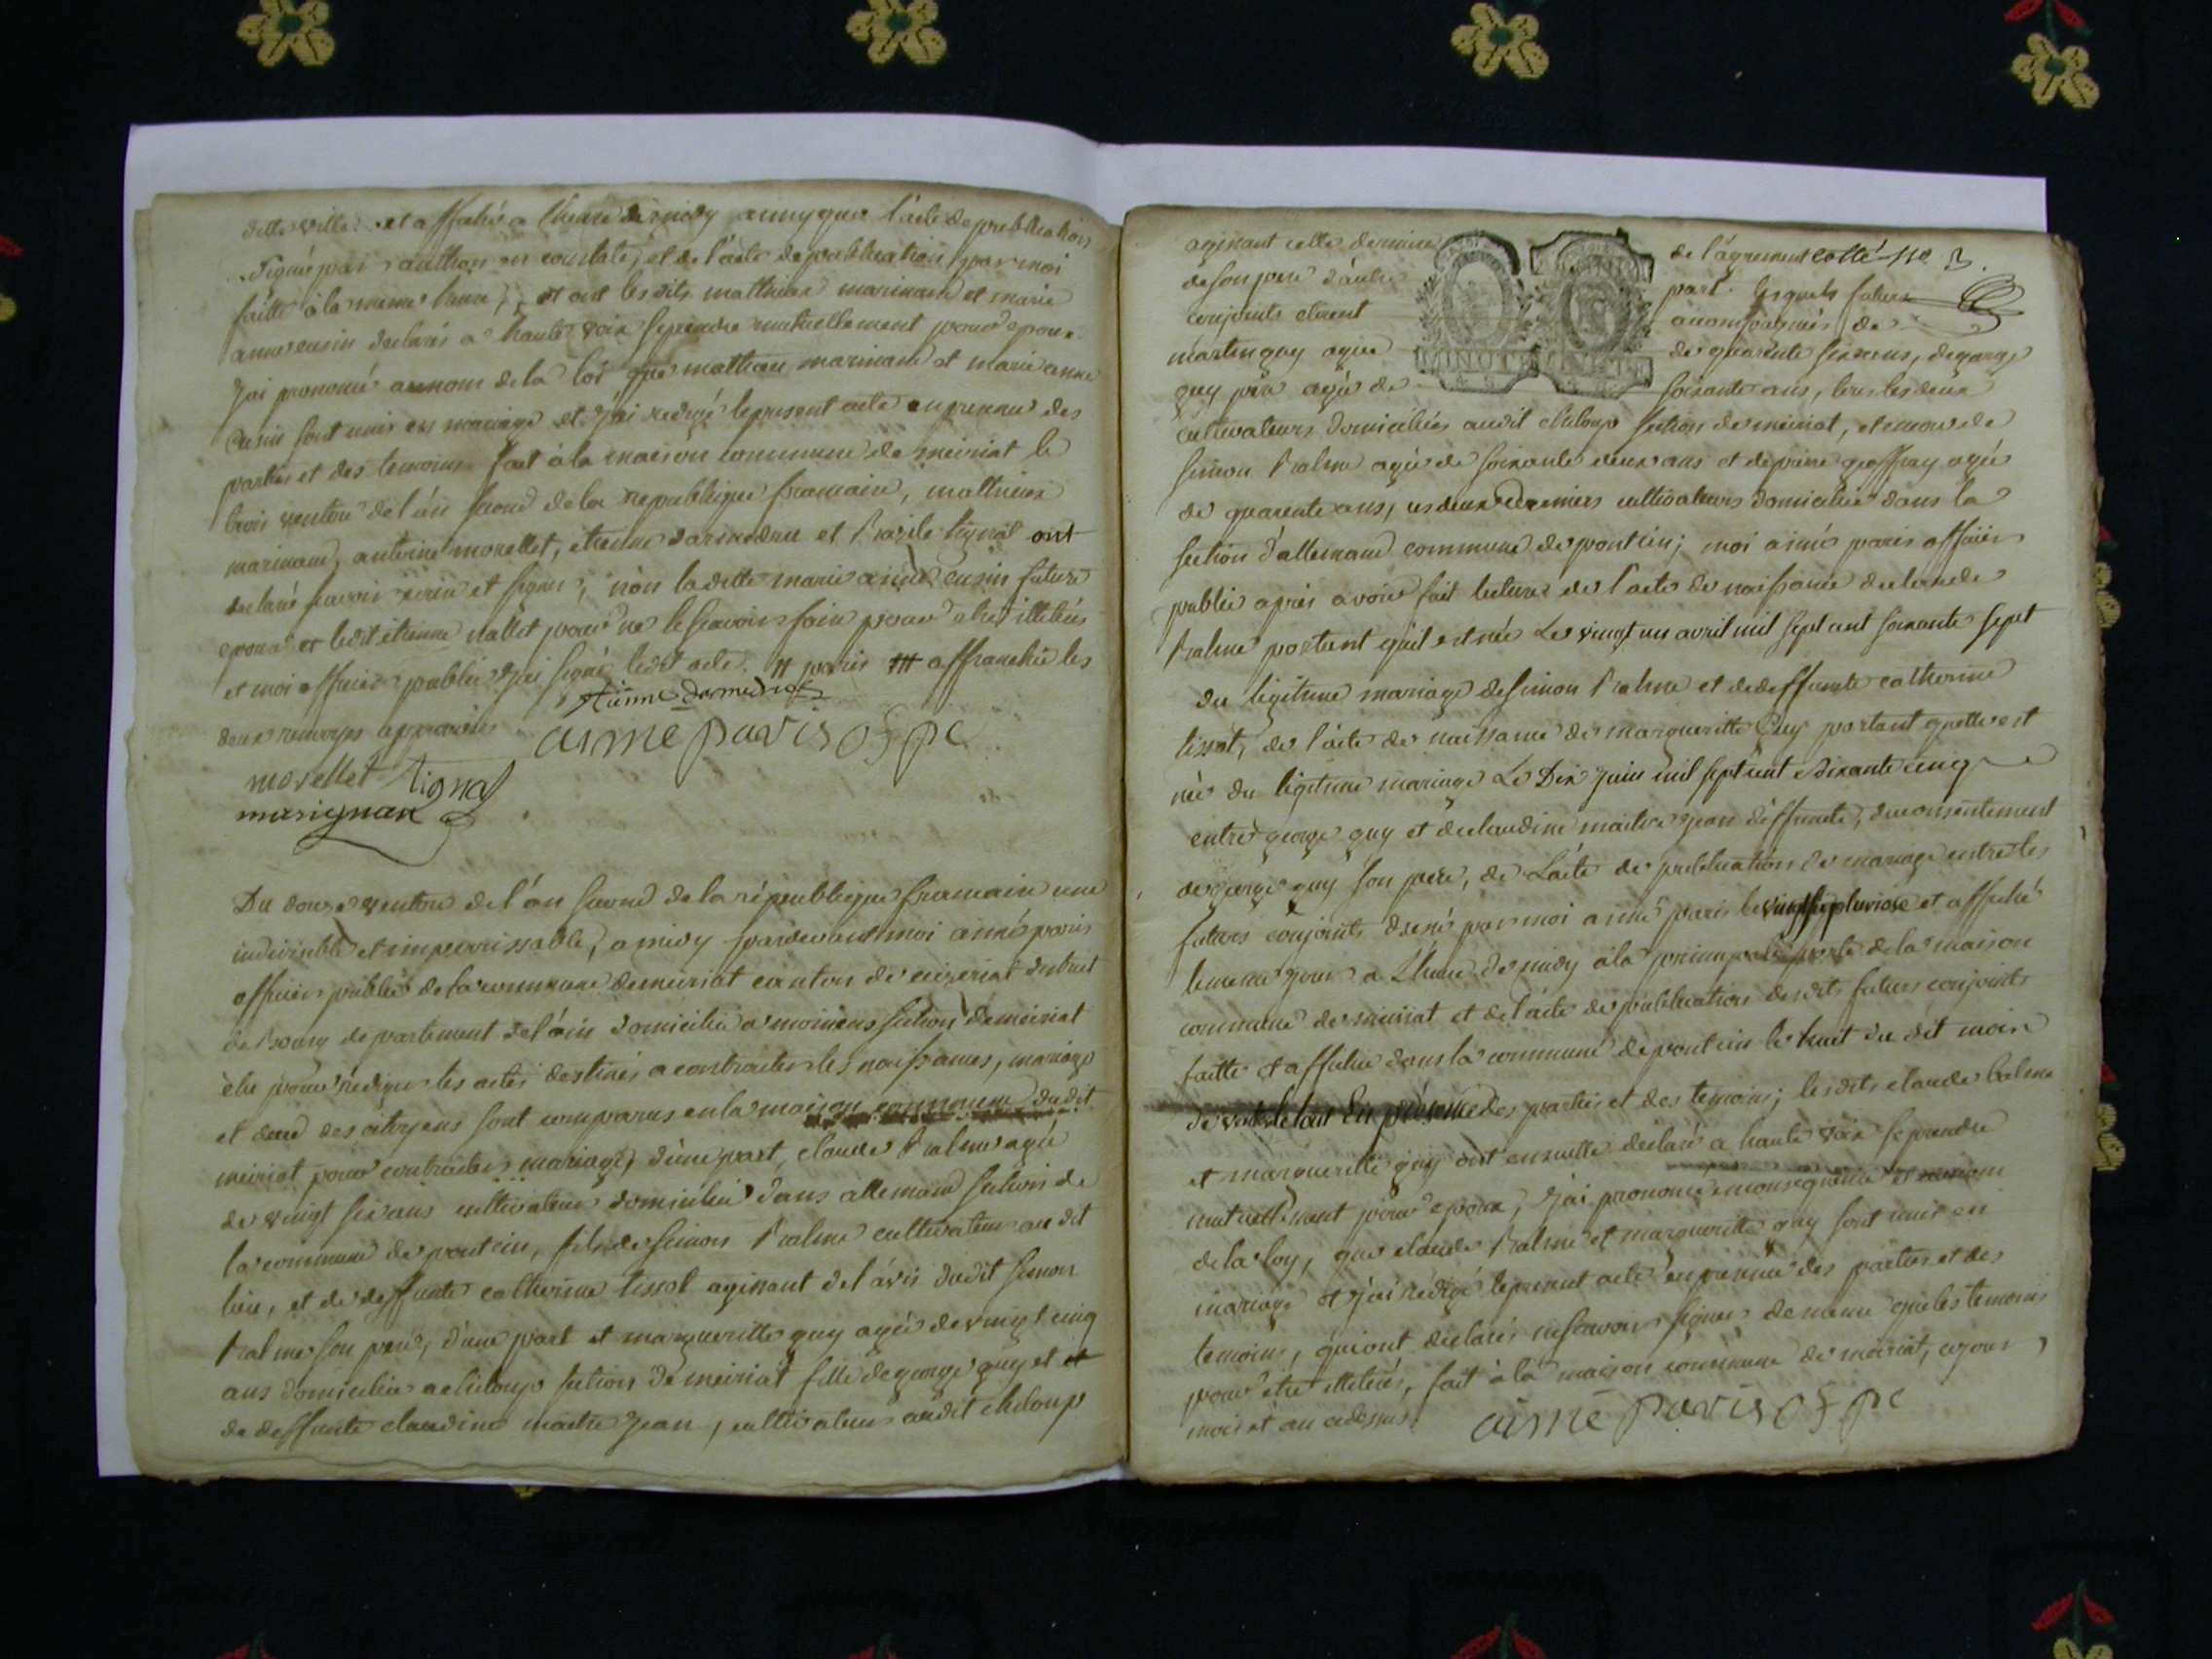 ditte ville et affichée a l'heure de midy ainsy que l'acte de publication
signé par authon en constate, et de l'acte de publication par moi
faitte à la meme heure, et ont lesdits matthieu marinand et marie
anne cusin declarés a haute voix se prendre mutuellement pour epoux
j'ai prononcé au nom de la loi que mathieu marinand et marie anne
cusin sont unis en mariage et j'ai redigé le present acte en presence des
parties et des temoins fait à la maison commune de meiriat le
trois ventose de l'an second de la republique francaise, matthieu
marinand, antoine morellet, etienne et Bazile tignat ont
declaré scavoir ecrire et signer, non laditte marie anne cusin future
epouse et ledit etienne nallet pour ne le scavoir faire pour etre illetérés
et moi officier public j'ai signé ledit acte. # paris ### affranchie les
deux renvoys approuvés
aimé paris off pc
morellet tignat
marignan
Du douze ventose de l'an second de la république francaise une
indivisible et imperissable, a midy pardevant moi aimé paris
officier public de la commune de meiriat canton de ceizeriat district
de Bourg departement de l'ain domicilié a moinans section de meiriat
élu pour rédiger les actes destinés a contracter les naissances, mariage
et decé des citoyens sont comparus en la maison commune dudit
meiriat pour contracter mariage, d'une part, claude Balme agé
de vingt six ans cultivateur domicilié dans allemand section de
la commune de pontcin, fils de simon Balme cultivateur au dit
lieu, et de deffunte catherine tissot agissant de l'avis dudit simon
Balme son pere, d'une part et margueritte guy agée de vingt cinq
ans domiciliée a chiloup section de meiriat fille de george guy et et
de deffunte claudine maitre jean, cultivateur audit chiloup
agissant cette derniere de l'agrement cotté no 3.
de son pere d'autre part. lesquels futurs
conjoints etoient acompagnés de
martin guy agée de quarente six ans, de george
guy pere agée de soixante ans, tous les deux
cultivateurs domiciliés audit chiloup section de meiriat, et encore de
simon Balme agée de soixante deux ans et de pierre geoffray agée
de quarente ans, ces deux derniers cultivateurs domiciliés dans la
section d'allemand commune de pontcin; moi aimé paris officier
public après avoir fait lecture de l'acte de naissance de claude
Balme portant qu'il est née Le vingt un avril mil sept cent soixante sept
du legitime mariage de simon Balme et de deffunte catherine
tissot, de l'acte de naissance de margueritte Guy portant quelle est
née du legitime mariage Le Dix juin mil sept cent soixante cinq
entre george guy et de claudine maitre jean deffunte, du consentement
de george guy son pere, de L'acte de publication de mariage entre les
futurs conjoints dressé par moi aimé paris le pluviose et affiché
le meme jour a L'heure de midy à la principale porte de la maison
commune de meiriat et de l'acte de publication desdits futurs conjoints
faitte et affichée dans la commune de pontcin le huit du dit mois
de le tout En présence des parties et des temoins; lesdits claude balme
et margueritte guy ont ensuitte déclaré a haute voix se prendre
mutuellement pour epoux, j'ai prononcé en consequence
de la loy, que claude Balme et margueritte guy sont unis en
mariage et j'ai rédigé le present acte en presence des parties et des
temoins, qui ont declarés ne scavoir signer de meme que les temoins
pour etre illetérés, fait à la maison commune de meiriat, ce jour
mois et an cidessus. aimé paris off pc